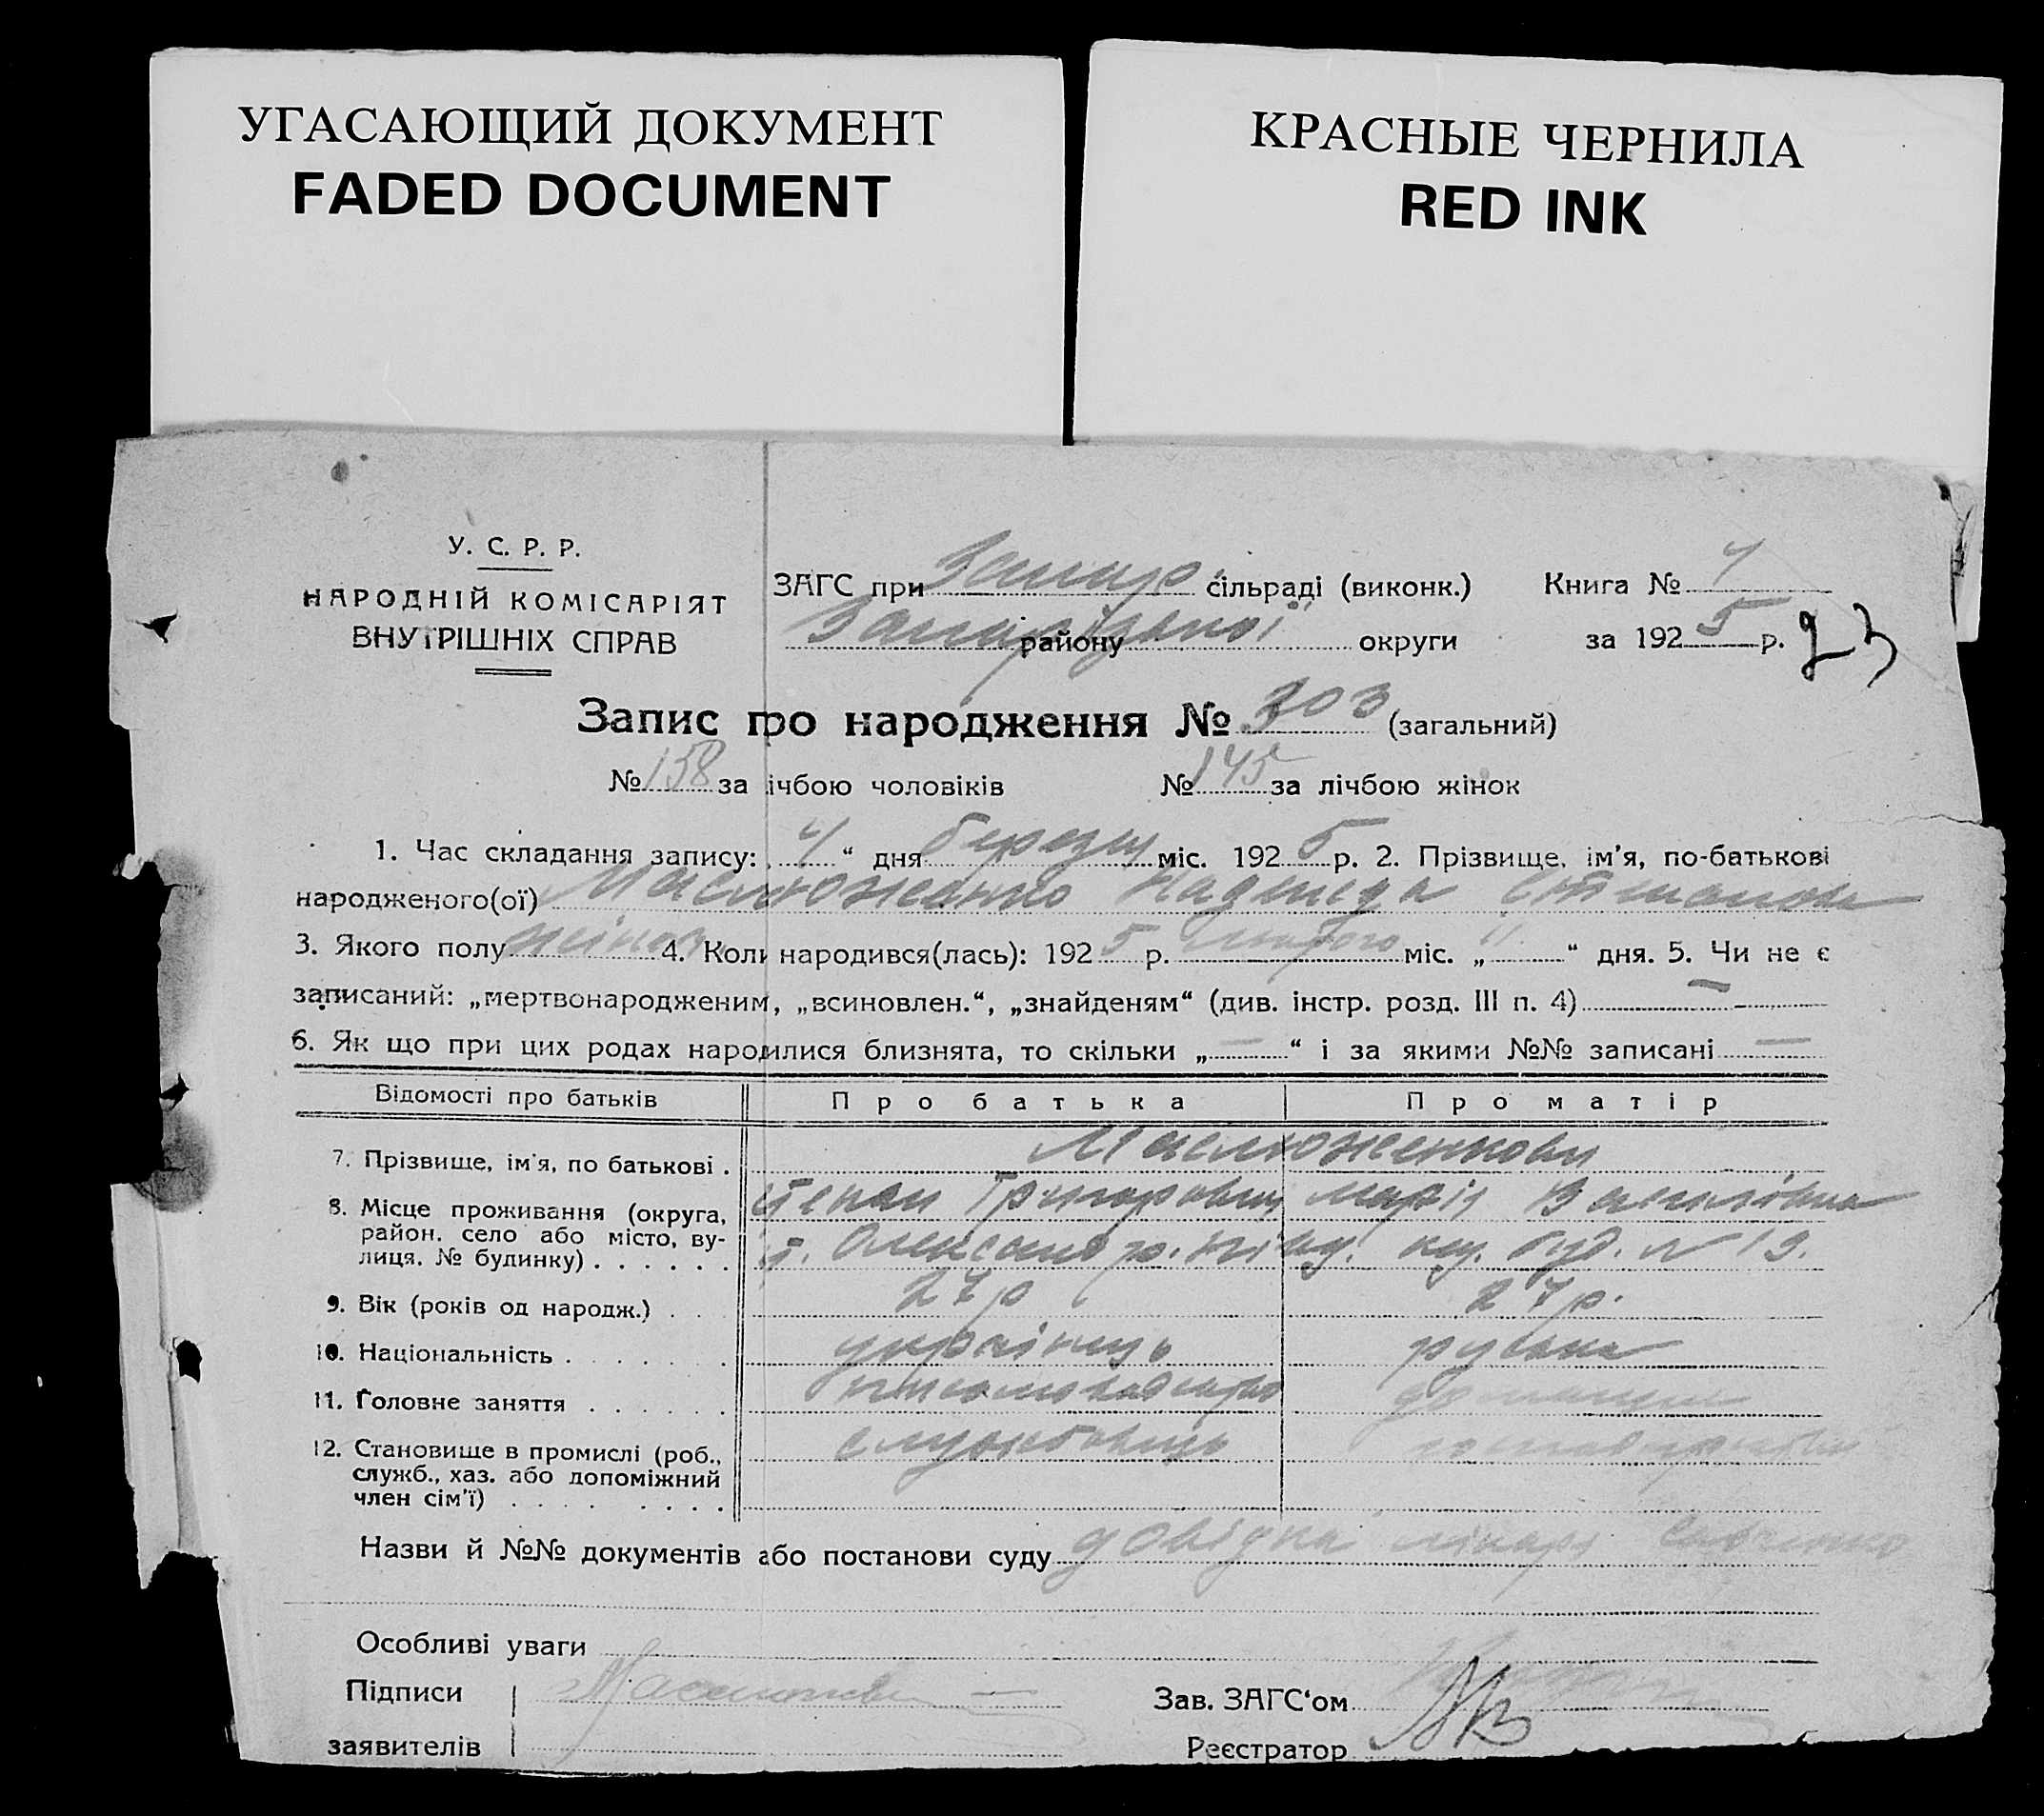 УГАСАЮЩИЙ ДОКУМЕНТ
FADED DOCUMENT
КРАСНЫЕ ЧЕРНИЛА
RED INK
У. С. Р. Р.
НАРОДНІЙ КОМІСАРІЯТ
ВНУТРІШНІХ СПРАВ
ЗАГС при Запор. сільраді (виконк.) Книга №
району округи за 1925 р. 23
Запис про народження № 303 (загальний)
№ 158 за лічбою чоловіків № 145 за лічбою жінок
1. Час складання запису: 4 “ дня березня міс. 1925 р. 2. Прізвище, ім'я, по-батькові
народженого(ої) Маслюженко Надежда
3. Якого полу жіноч. 4. Коли народився(лась): 1925 р. лютого міс. „ 11 “ дня. 5. Чи не є
записаний: „мертвонародженим, „всиновлен.“, „знайденям“ (див. інстр. розд. III п. 4) —
6. Як що при цих родах народилися близнята, то скільки „ — “ і за якими №№ записані —
Відомості про батьків Про батька Про матір
7. Прізвище, ім'я, по батькові . Маслюженкови
Степан Григорович Марія Василівна
8. Місце проживання (округа, район. село або місто, вулиця. № будинку) . . . . . . буд. № 19.
9. Вік (років од народж.) . . 27 р 27 р.
10. Національність . . . . . . . українець руська
11. Головне заняття . . . . . . домашнє
12. Становище в промислі (роб., служб., хаз. або допоміжний член сім'ї) . . . . . . . . службовець
Назви й №№ документів або постанови суду довідка лікаря
Особливі уваги
Підписи
заявителів
Зав. ЗАГС‘ом
Реєстратор